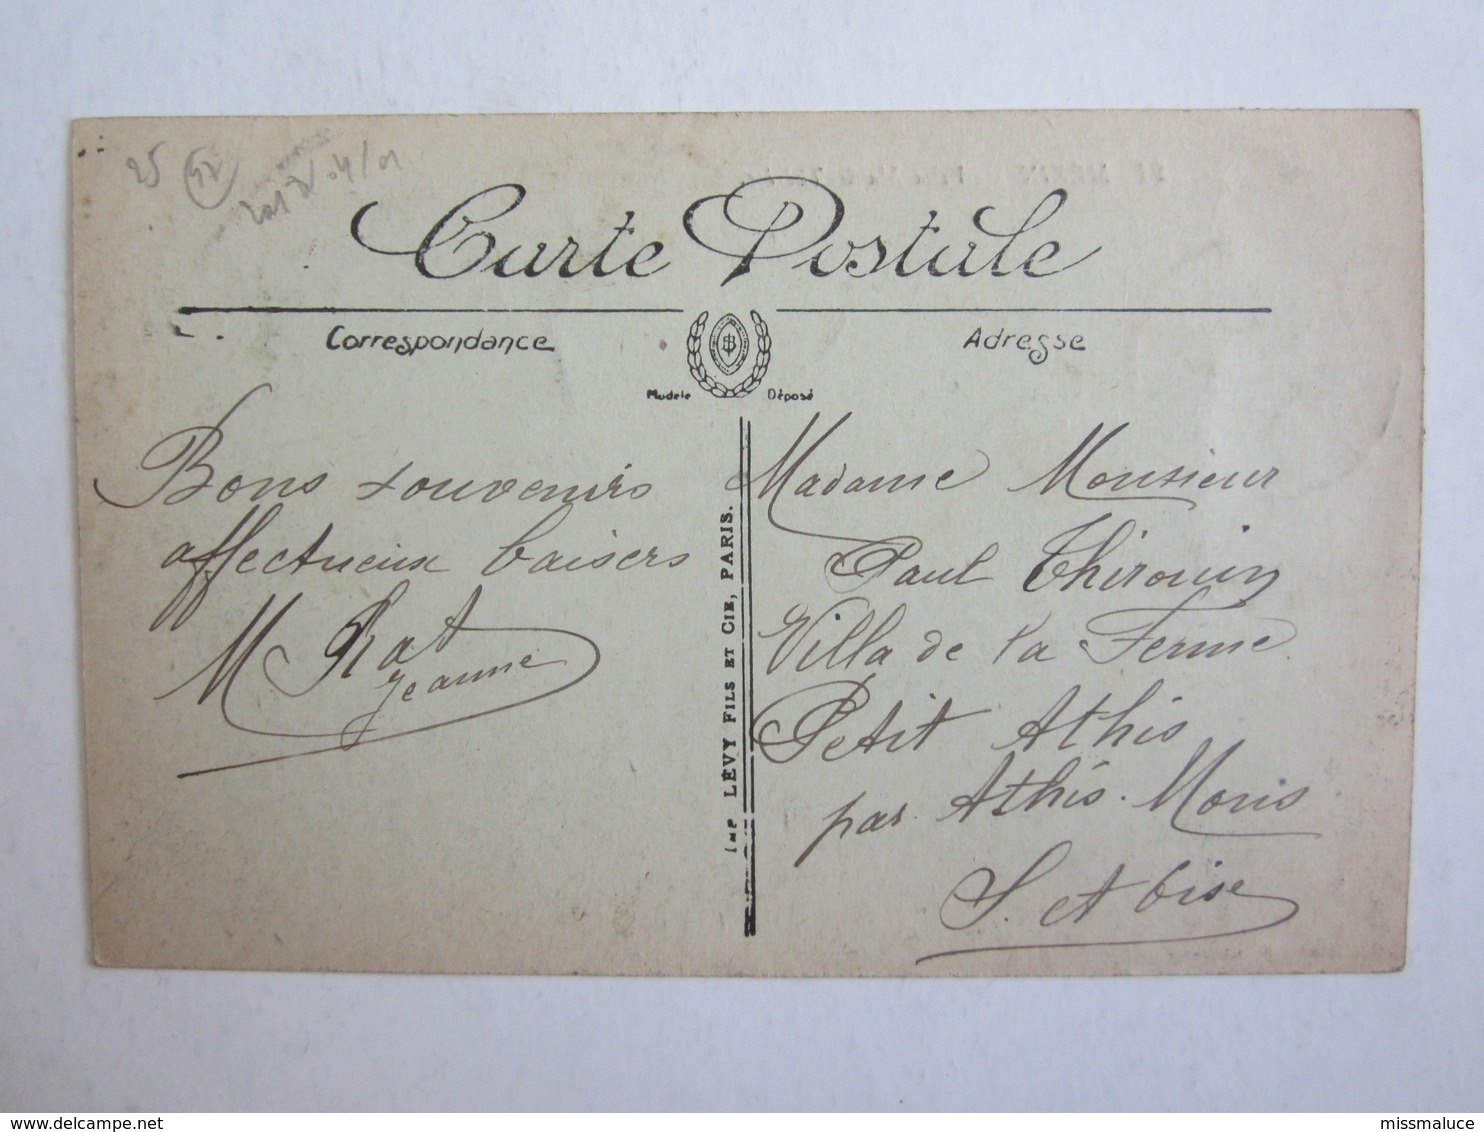 25 52
Carte Postale
Correspondance
Adresse
Modèle Déposé
Bons souvenirs
affectueux baisers
M Rat
Jeanne
IMP LÉVY FILS ET CIE, PARIS.
Madame Monsieur
Paul Thirouin
Villa de la Ferme
Petit Athis
par Athis. Mons
S. et Oise
missmaluce